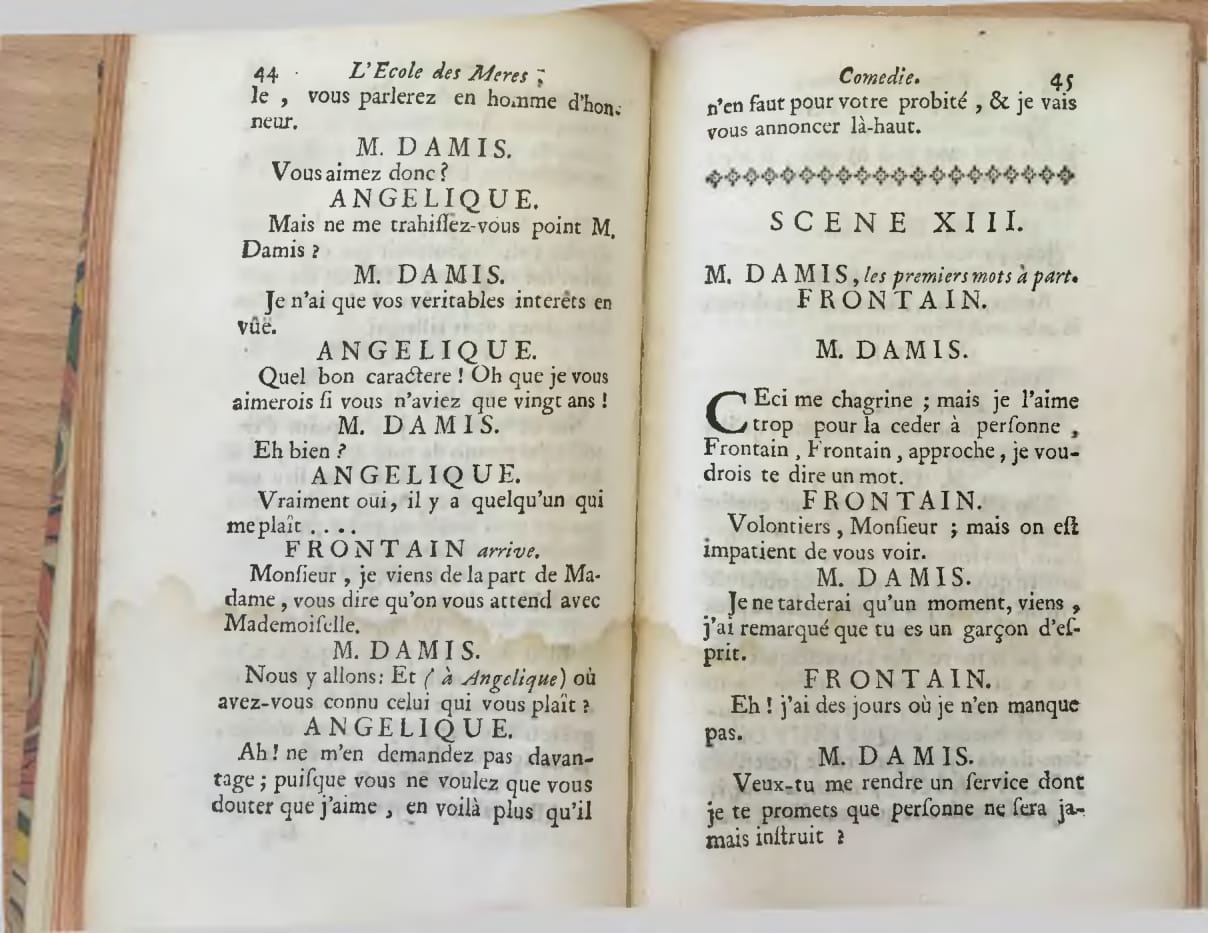 44 L'Ecole des Meres ;
le , vous parlerez en homme d'hon-
neur.
M. DAMIS.
Vous aimez donc ?
ANGELIQUE.
Mais ne me trahiſſez-vous point M.
Damis ?
M. DAMIS.
Je n'ai que vos veritables interêts en
vûë.
ANGELIQUE.
Quel bon caractere ! Oh que je vous
aimerois ſi vous n'aviez que vingt ans !
M. DAMIS.
Eh bien ?
ANGELIQUE.
Vraiment oui, il y a quelqu'un qui
me plaît . . . .
FRONTAIN arrive.
Monſieur , je viens de la part de Ma-
dame , vous dire qu'on vous attend avec
Mademoiſelle.
M. DAMIS.
Nous y allons: Et ( à Angelique) où
avez-vous connu celui qui vous plaît ?
ANGELIQUE.
Ah ! ne m'en demandez pas davan-
tage ; puiſque vous ne voulez que vous
douter que j'aime , en voilà plus qu'il
Comedie. 45
n'en faut pour votre probité , & je vais
vous annoncer là-haut.
SCENE XIII.
M. DAMIS, les premiers mots à part.
FRONTAIN.
M. DAMIS.
CEci me chagrine ; mais je l'aime
trop pour la ceder à perſonne ,
Frontain , Frontain , approche , je vou-
drois te dire un mot.
FRONTAIN.
Volontiers , Monſieur ; mais on eſt
impatient de vous voir.
M. DAMIS.
Je ne tarderai qu'un moment, viens ,
j'ai remarqué que tu es un garçon d'eſ-
prit.
FRONTAIN.
Eh ! j'ai des jours où je n'en manque
pas.
M. DAMIS.
Veux-tu me rendre un ſervice dont
je te promets que perſonne ne ſera ja-
mais inſtruit ?